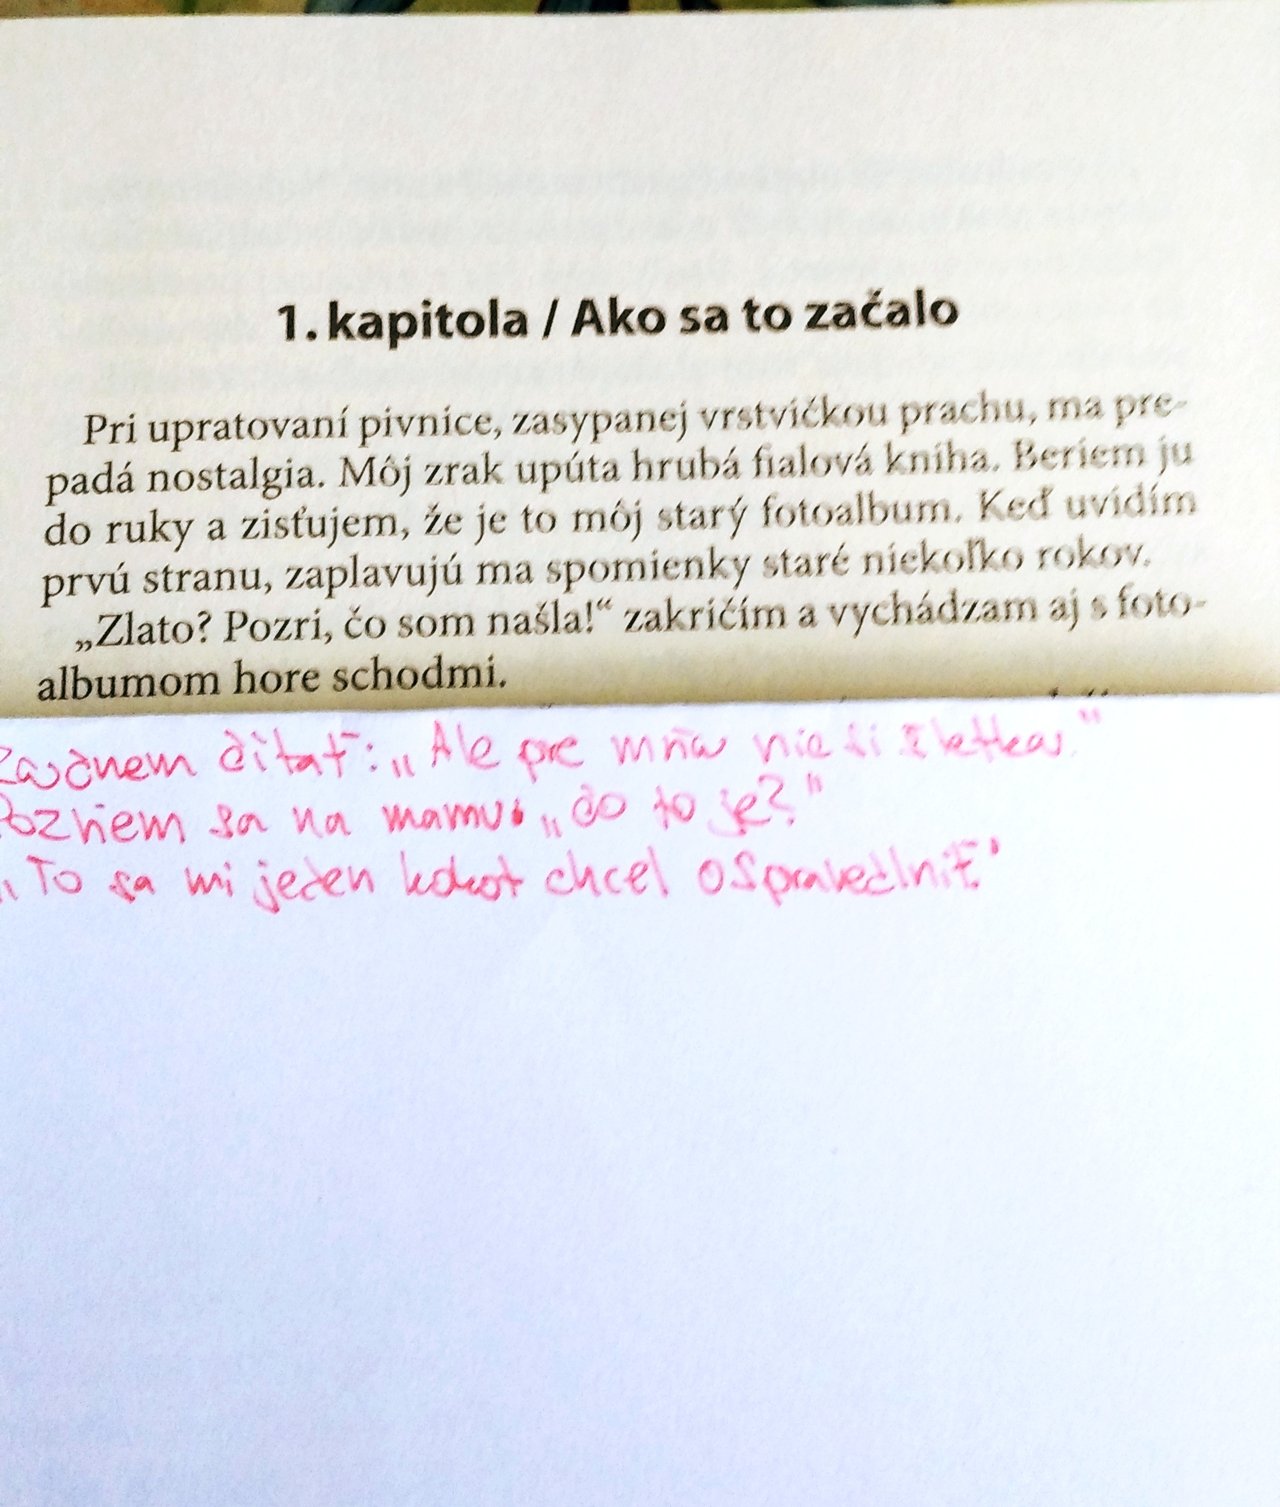 1. kapitola / Ako sa to začalo
Pri upratovaní pivnice, zasypanej vrstvičkou prachu, ma pre-
padá nostalgia. Môj zrak upúta hrubá fialová kniha. Beriem ju
do ruky a zisťujem, že je to môj starý fotoalbum. Keď uvidím
prvú stranu, zaplavujú ma spomienky staré niekoľko rokov.
„Zlato? Pozri, čo som našla!“ zakričím a vychádzam aj s foto-
albumom hore schodmi.
Začnem čítať: „Ale pre mňa nie si
Pozriem sa na mamu: „čo to je?"
„To sa mi jeden kokot chcel ospravedlniť."